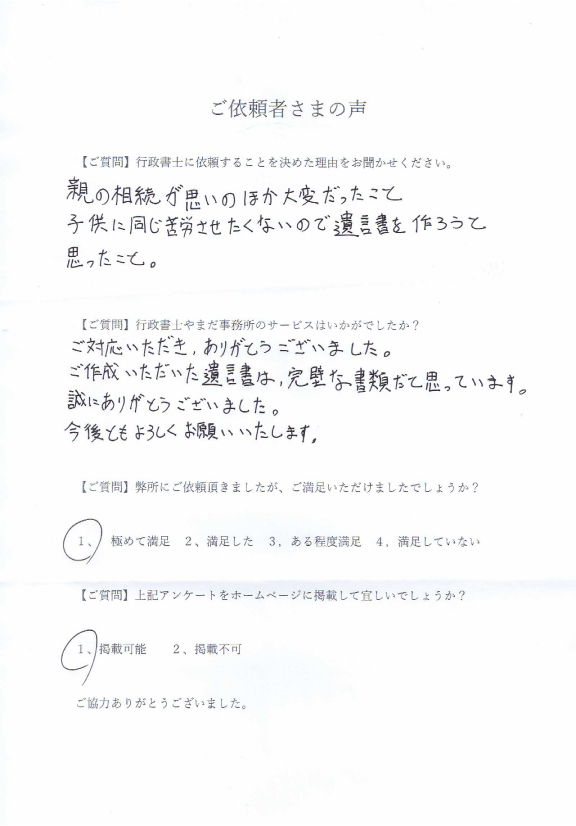 ご依頼者さまの声
【ご質問】行政書士に依頼することを決めた理由をお聞かせください。
親の相続が思いのほか大変だったこと
子供に同じ苦労させたくないので遺言書を作ろうと
思ったこと。
【ご質問】行政書士やまだ事務所のサービスはいかがでしたか？
ご対応いただき、ありがとうございました。
ご作成いただいた遺言書は、完璧な書類だと思っています。
誠にありがとうございました。
今後ともよろしくお願いいたします。
【ご質問】弊所にご依頼頂きましたが、ご満足いただけましたでしょうか？
1、極めて満足　2、満足した　3、ある程度満足　4、満足していない
【ご質問】上記アンケートをホームページに掲載して宜しいでしょうか？
1、掲載可能　2、掲載不可
ご協力ありがとうございました。